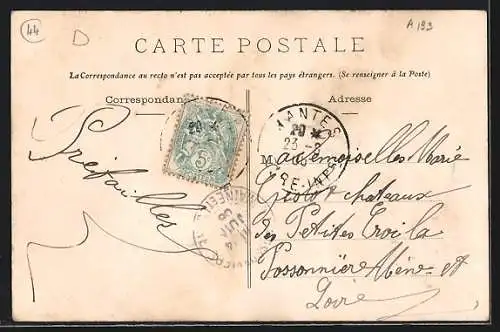 44
D
A 193
CARTE POSTALE
La Correspondance au recto n'est pas acceptée par tous les pays étrangers. (Se renseigner à la Poste)
Correspondance
Adresse
Préfailles
5
NANTES
23-8
RE-INF
Mademoiselle Marie
châteaux
des Petites
Possonnière Maine et
Loire